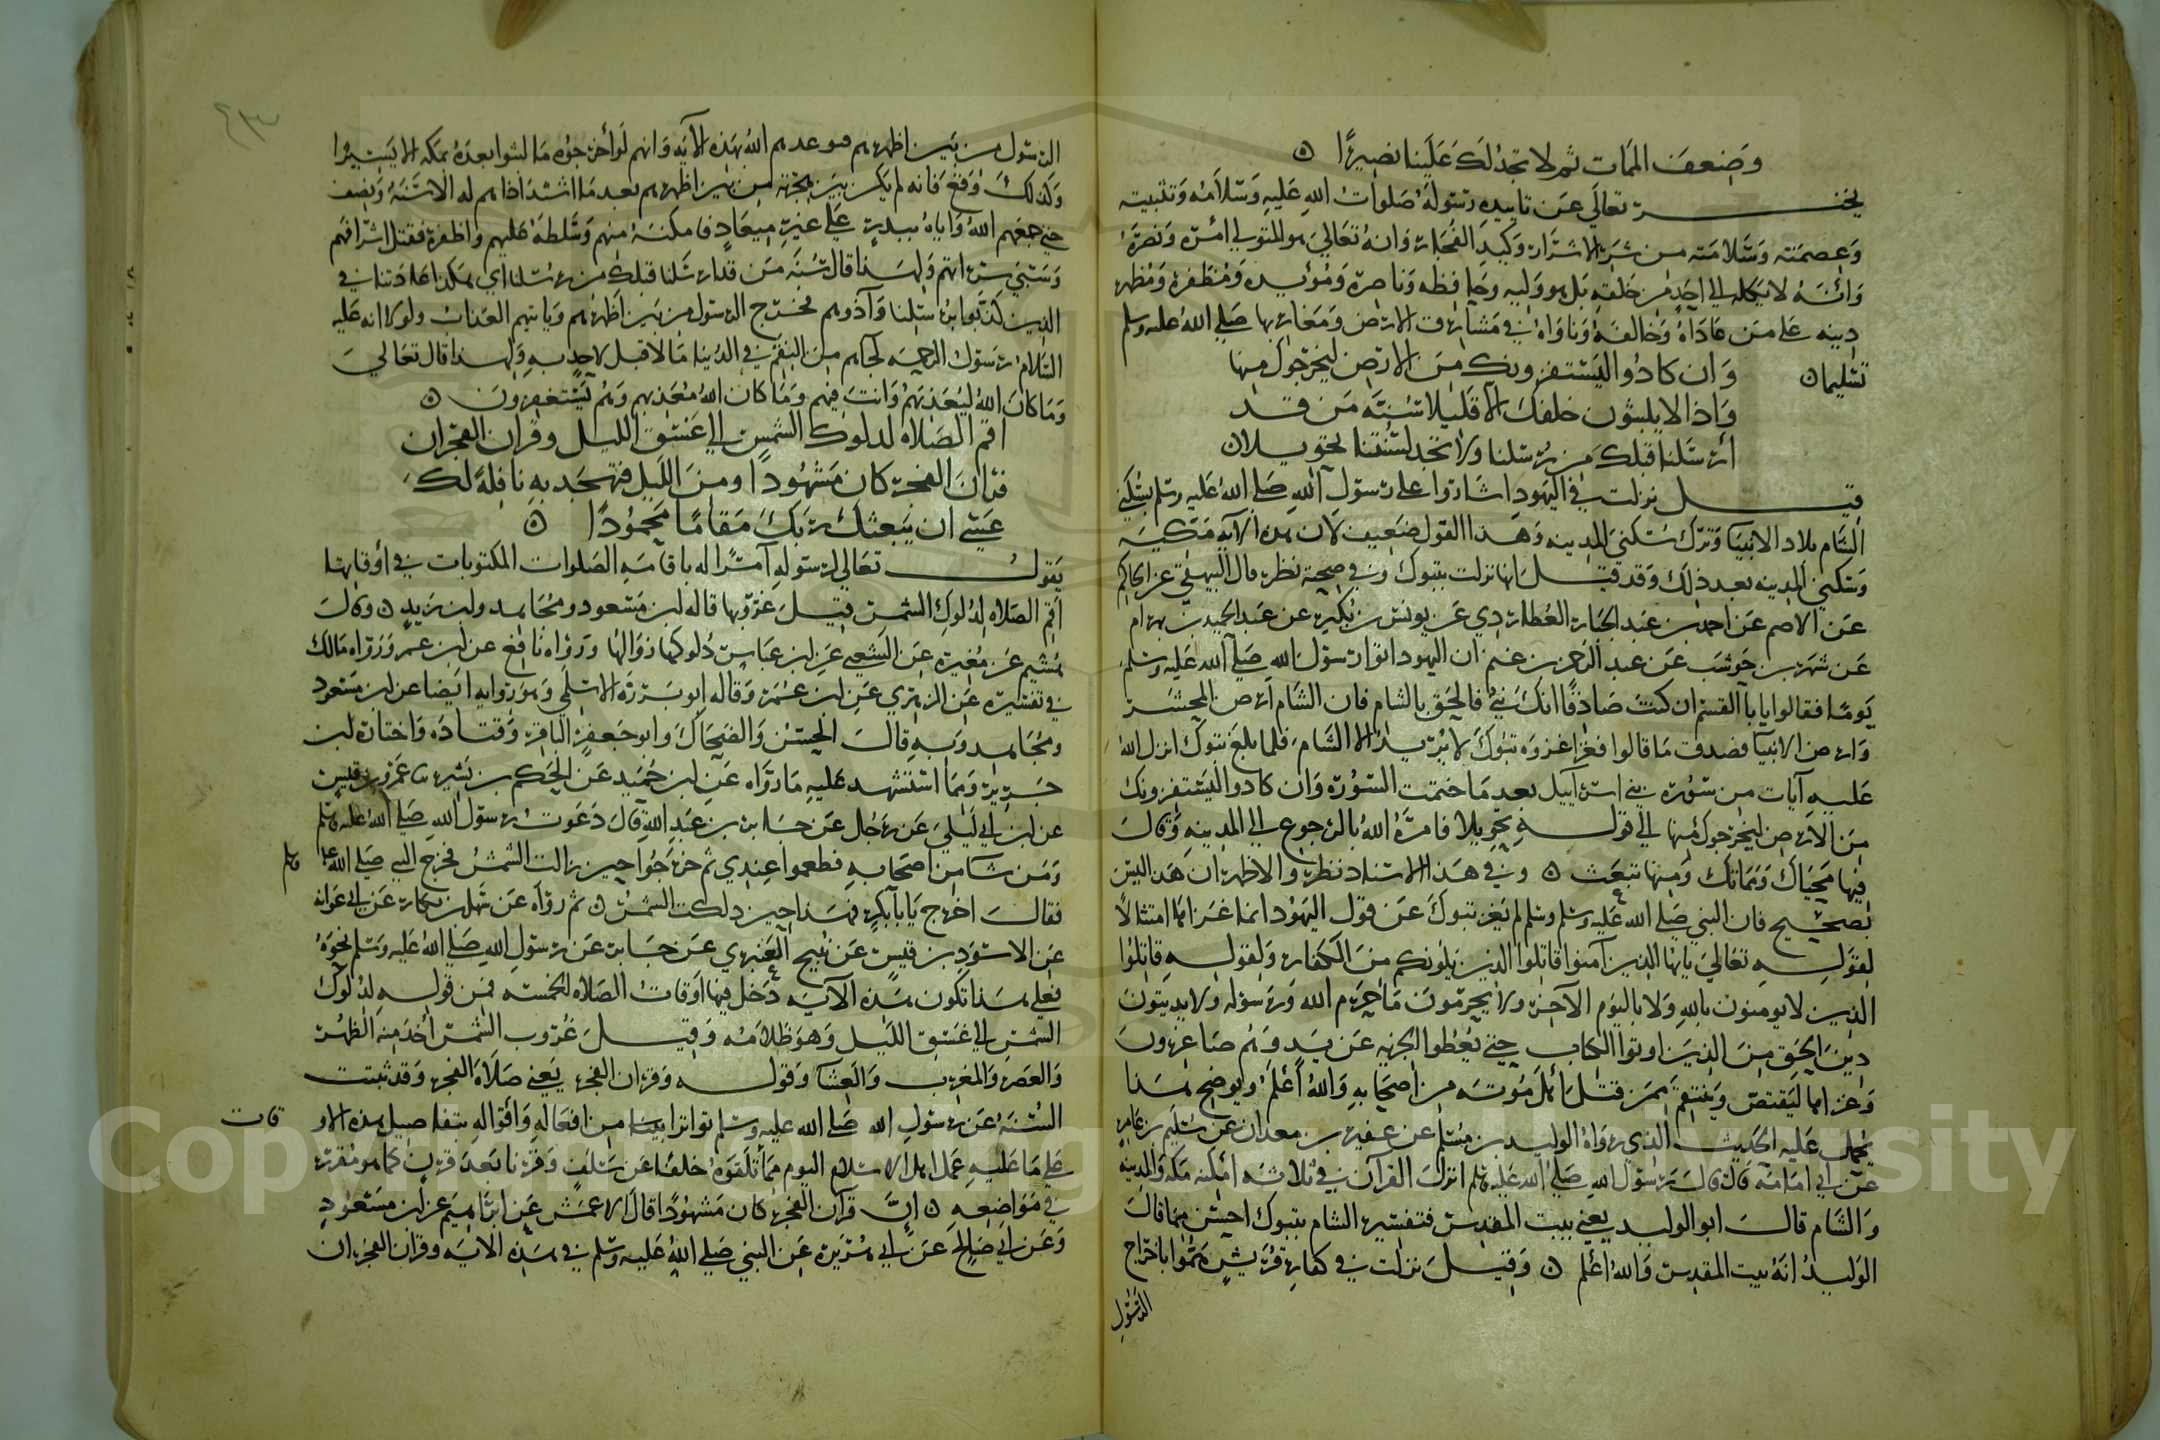 وضعف الممات ثم لا تجد لك علينا نصيرا ه
يخبر تعالى عن تاييده رسوله صلوات الله عليه وسلامه وتثبيته
وعصمته وسلامته من شر الاشرار وكيد الفجار وانه تعالى هو المتولي امره ونصره
وانه لا يكله الى احد من خلقه بل هو وليه وحافظه وناصره ومؤيده ومظفره ومظهر
دينه على من عاداه وخالفه وناواه في مشارق الارض ومغاربها صلى الله عليه وسلم
تسليما ه وان كادوا ليستفزونك من الارض ليخرجوك منها
واذا لا يلبثون خلفك الا قليلا سنة من قد
أرسلنا قبلك من رسلنا ولا تجد لسنتنا تحويلا ه
قيل نزلت في اليهود اشاروا على رسول الله صلى الله عليه وسلم بسكنى
الشام بلاد الانبيا وترك سكنى المدينه وهذا القول ضعيف لان هذه الآيه مكيه
وسكنى المدينه بعد ذلك وقد قيل انها نزلت بتبوك وفي صحته نظر قال البيهقي عن الحاكم
عن الاصم عن احمد بن عبد الجبار العطاردي عن يونس بن بكير عن عبد الحميد بن بهرام
عن شهر بن حوشب عن عبد الرحمن بن غنم ان اليهود اتوا رسول الله صلى الله عليه وسلم
يوما فقالوا يا با القسم ان كنت صادقا انك نبي فالحق بالشام فان الشام ارض المحشر
وارض الانبيا فصدق ما قالوا فغزا غزوه تبوك لا يريد الا الشام فلما بلغ تبوك انزل الله
عليه آيات من سوره بني اسرآييل بعد ما ختمت السورة وان كادوا ليستفزونك
من الارض ليخرجوك منها الى قوله تحويلا فامره الله بالرجوع الى المدينه وقال
فيها محياك ومماتك ومنها تبعث ه وفي هذا الاسناد نظر والاظهر ان هذا ليس
بصحيح فان النبي صلى الله عليه وسلم لم يغز تبوك عن قول اليهود انما غزاها امتثالا
لقوله تعالى يايها الذين آمنوا قاتلوا الذين يلونكم من الكفار ولقوله قاتلوا
الذين لا يومنون بالله ولا باليوم الآخر ولا يحرمون ما حرم الله ورسوله ولا يدينون
دين الحق من الذين اوتوا الكتاب حتى يعطوا الجزيه عن يد وهم صاغرون
وغزاها ليقتص وينتقم ممن قتل اهل موته من اصحابه والله أعلم ولو صح هذا
يحمل عليه الحديث الذي رواه الوليد بن مسلم عن عفير بن معدان عن سليم بن عامر
عن ابي امامه قال قال رسول الله صلى الله عليه وسلم انزل القرآن في ثلاثه امكنه مكه والمدينه
والشام قال ابو الوليد يعني بيت المقدس فتفسير الشام بتبوك احسن مما قال
الوليد انه بيت المقدس والله أعلم ه وقيل نزلت في كفار قريش هموا باخراج
الرسول
الرسول من بين اظهرهم فتوعدهم الله بهذه الآيه وانهم لو أخرجوه ما لبثوا بعده بمكه الا يسيرا
وكذلك وقع فانه لم يكن بين هجرته من بين اظهرهم بعد ما اشتد اذاهم له الا سنه ونصف
حتى جمعهم الله واياه ببدر على غير ميعاد فامكنه منهم وسلطه عليهم واظفره فقتل اشرافهم
وسبى سراتهم ولهذا قال سنه من قد ارسلنا قبلك من رسلنا اي هكذا عادتنا في
الذين كذبوا رسلنا وآذوهم بخرج الرسول من بين اظهرهم وياتيهم العذاب ولولا انه عليه
السلام رسول الرحمه لجاهم من النقم في الدنيا ما لا قبل لاحد به ولهذا قال تعالى
وما كان الله ليعذبهم وانت فيهم وما كان الله معذبهم وهم يستغفرون ه
اقم الصلاه لدلوك الشمس الى غسق الليل وقران الفجر ان
قران الفجر كان مشهودا ومن الليل فتهجد به نافلة لك
عسى ان يبعثك ربك مقاما محمودا ه
يقول تعالى لرسوله آمرا له باقامه الصلوات المكتوبات في أوقاتها
اقم الصلاه لدلوك الشمس قيل غروبها قاله ابن مسعود ومجاهد وابن زيد ه وقال
هشيم عن مغيره عن الشعبي عن ابن عباس دلوكها زوالها ورواه نافع عن ابن عمر ورواه مالك
في تفسيره عن الزهري عن ابن عمر وقاله ابو برزه الاسلمي وهو روايه ايضا عن ابن مسعود
ومجاهد وبه قال الحسن والضحاك وابو جعفر الباقر وقتاده واختاره ابن
جرير ومما استشهد عليه ما رواه عن ابن حميد عن الحكم بن بشير ما عمرو بن قيس
عن ابن ابي ليلى عن رجل عن جابر بن عبد الله قال دعوت رسول الله صلى الله عليه وسلم
ومن شا من اصحابه فطعموا عندي ثم خرجوا حين زالت الشمس فخرج النبي صلى الله عليه وسلم
فقال اخرج يا با بكر فهذا حين دلكت الشمس ه ثم رواه عن سهل بن بكار عن ابي عوانه
عن الاسود بن قيس عن نبيح العنزي عن جابر عن رسول الله صلى الله عليه وسلم نحوه
فعلى هذا تكون هذه الآيه دخل فيها اوقات الصلاه الخمسه فمن قوله لدلوك
الشمس الى غسق الليل وهو ظلامه وقيل غروب الشمس أخذ منه الظهر
والعصر والمغرب والعشا وقوله وقران الفجر يعني صلاة الفجر وقد ثبتت
السنه عن رسول الله صلى الله عليه وسلم تواترا من افعاله وأقواله بتفاصيل هذه الاوقات
على ما عليه عمل اهل الاسلام اليوم مما تلقوه خلفا عن سلف وقرنا بعد قرن كما هو مقرر
في مواضعه ه إن قرآن الفجر كان مشهودا قال الاعمش عن ابراهيم عن ابن مسعود
وعن ابي صالح عن ابي هريرة عن النبي صلى الله عليه وسلم في هذه الآيه وقران الفجر ان
Copyright © King Saud University